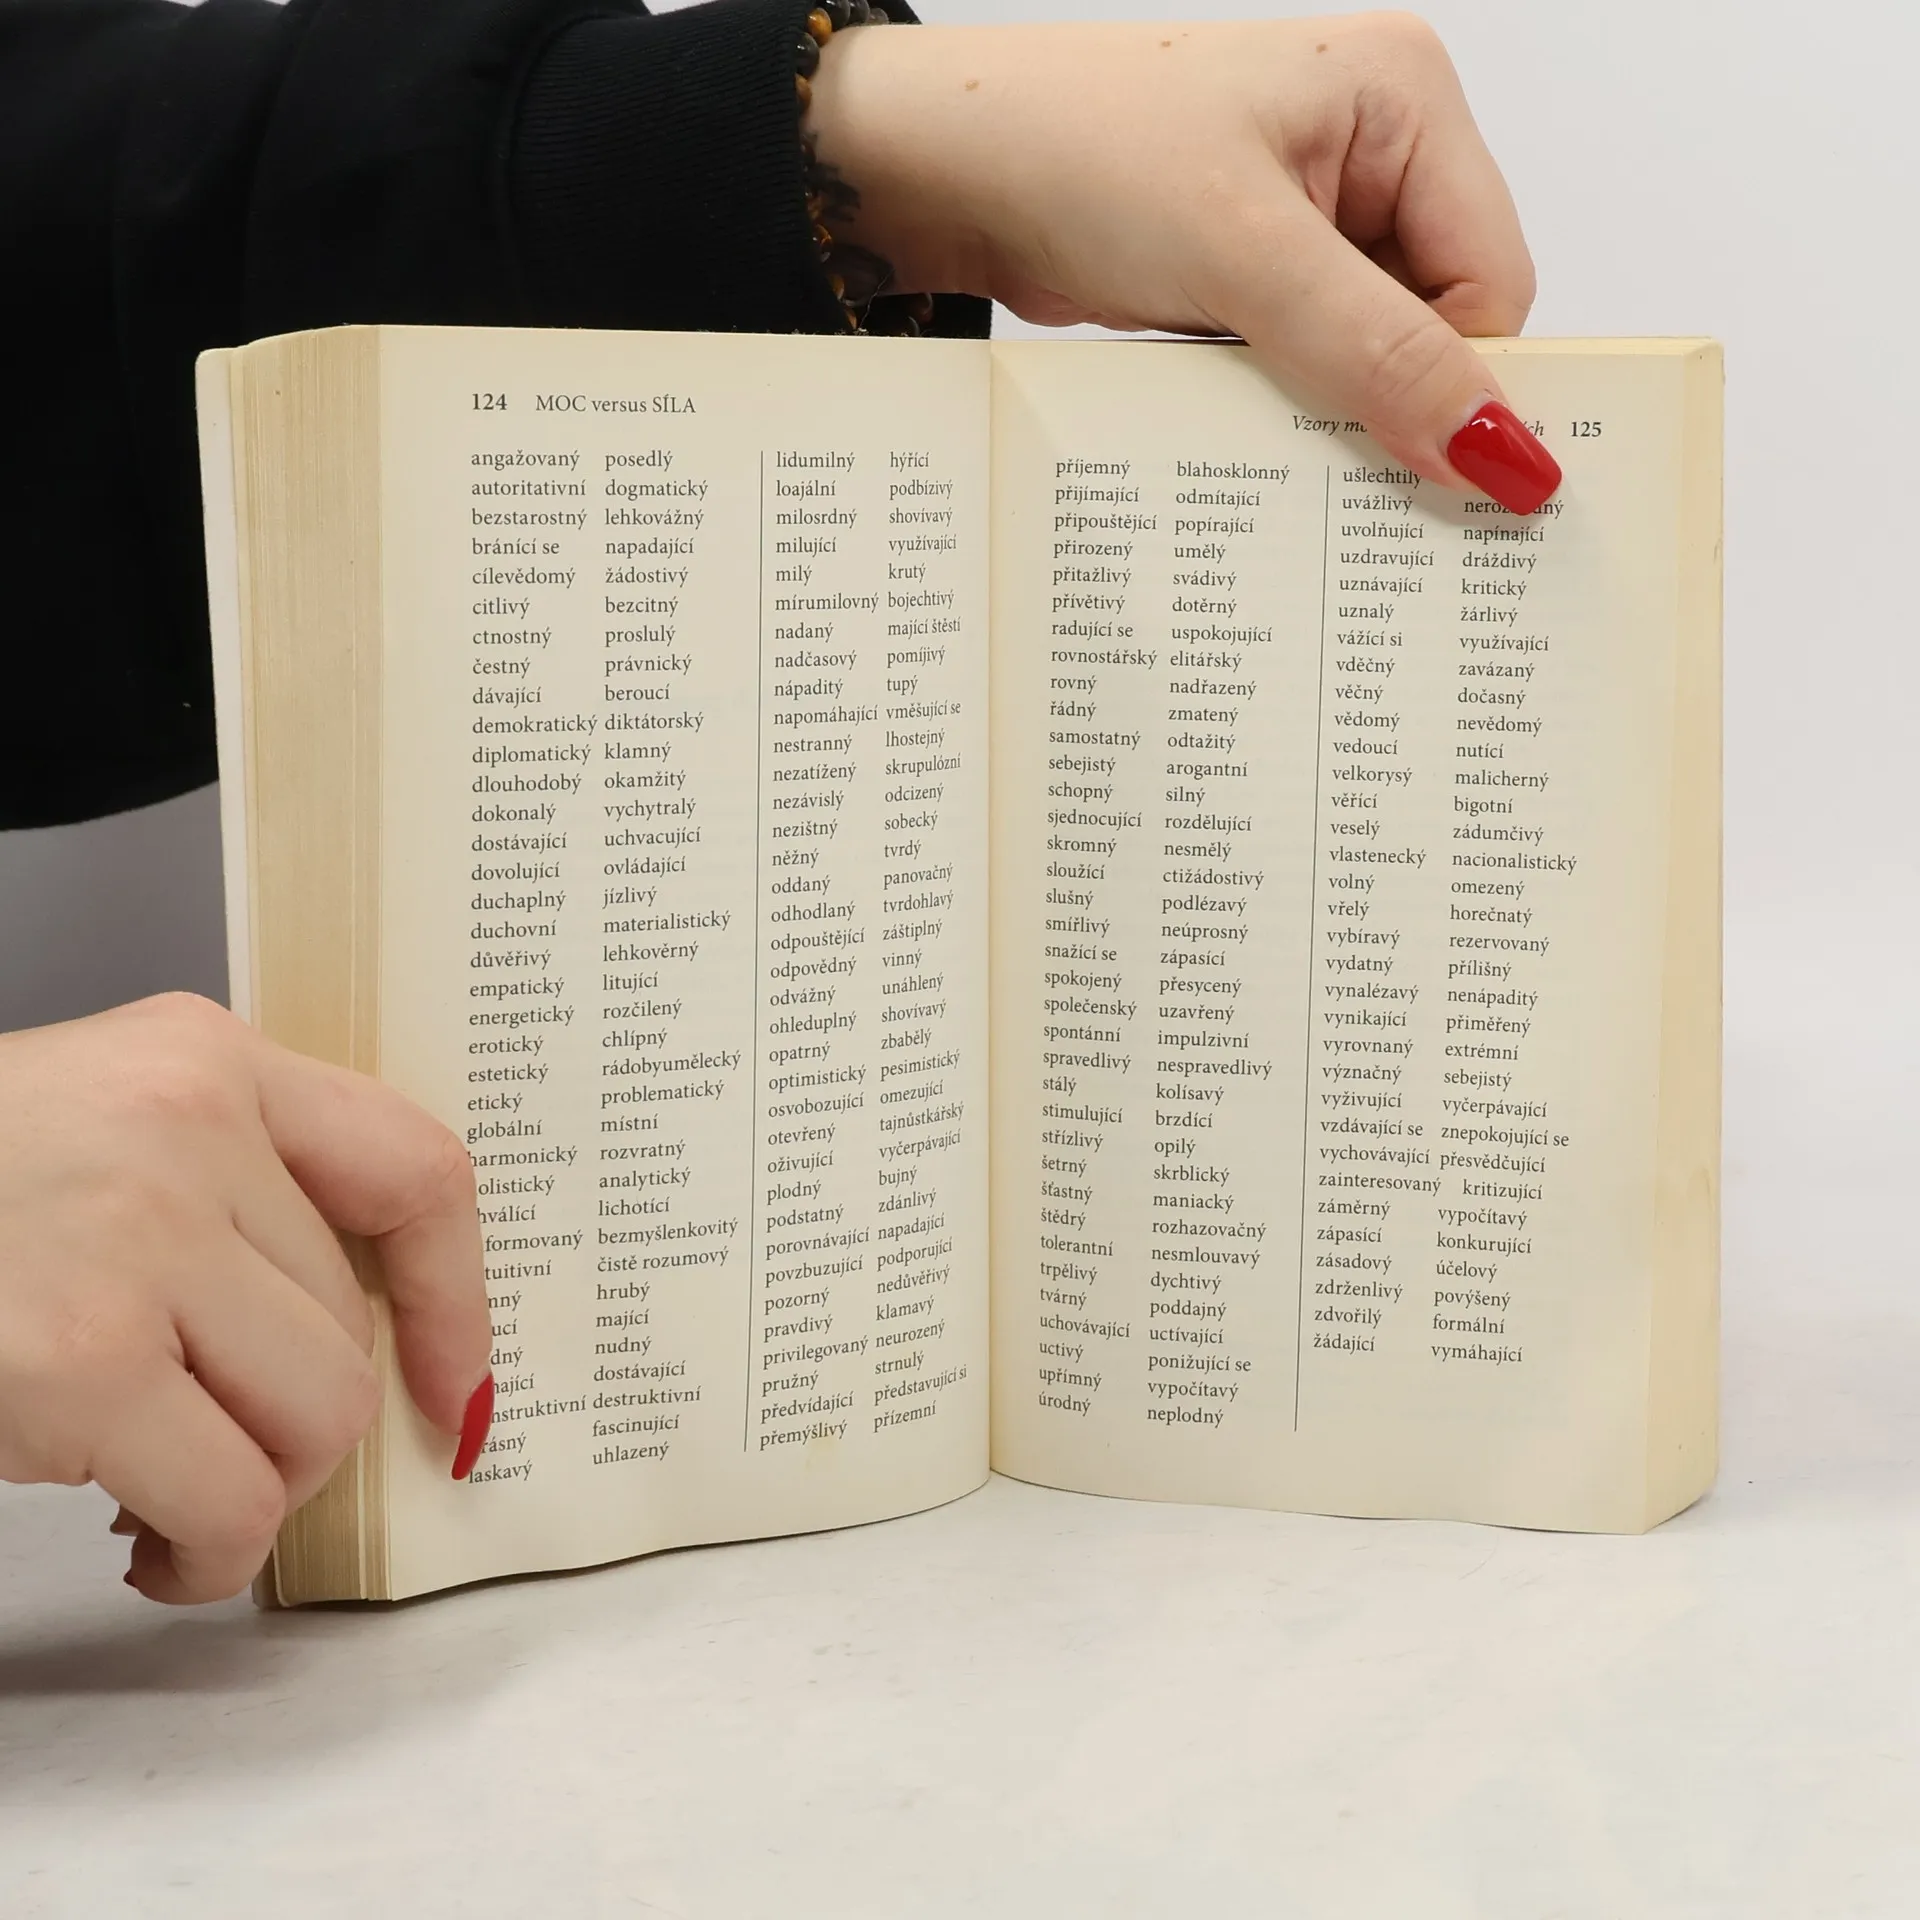 124 MOC versus SÍLA
angažovaný posedlý
autoritativní dogmatický
bezstarostný lehkovážný
bránící se napadající
cílevědomý žádostivý
citlivý bezcitný
ctnostný proslulý
čestný právnický
dávající beroucí
demokratický diktátorský
diplomatický klamný
dlouhodobý okamžitý
dokonalý vychytralý
dostávající uchvacující
dovolující ovládající
duchaplný jízlivý
duchovní materialistický
důvěřivý lehkověrný
empatický litující
energetický rozčilený
erotický chlípný
estetický rádobyumělecký
etický problematický
globální místní
harmonický rozvratný
olistický analytický
hválící lichotící
formovaný bezmyšlenkovitý
tuitivní čistě rozumový
hrubý
ucí mající
dný nudný
ající dostávající
nstruktivní destruktivní
rásný fascinující
laskavý uhlazený
lidumilný hýřící
loajální podbízivý
milosrdný shovívavý
milující využívající
milý krutý
mírumilovný bojechtivý
nadaný mající štěstí
nadčasový pomíjivý
nápaditý tupý
napomáhající vměšující se
nestranný lhostejný
nezatížený skrupulózní
nezávislý odcizený
nezištný sobecký
něžný tvrdý
oddaný panovačný
odhodlaný tvrdohlavý
odpouštějící záštiplný
odpovědný vinný
odvážný unáhlený
ohleduplný shovívavý
opatrný zbabělý
optimistický pesimistický
osvobozující omezující
otevřený tajnůstkářský
oživující vyčerpávající
plodný bujný
podstatný zdánlivý
porovnávající napadající
povzbuzující podporující
pozorný nedůvěřivý
pravdivý klamavý
privilegovaný neurozený
pružný strnulý
předvídající představující si
přemýšlivý přízemní
Vzory 125
příjemný blahosklonný
přijímající odmítající
připouštějící popírající
přirozený umělý
přitažlivý svádivý
přívětivý dotěrný
radující se uspokojující
rovnostářský elitářský
rovný nadřazený
řádný zmatený
samostatný odtažitý
sebejistý arogantní
schopný silný
sjednocující rozdělující
skromný nesmělý
sloužící ctižádostivý
slušný podlézavý
smířlivý neúprosný
snažící se zápasící
spokojený přesycený
společenský uzavřený
spontánní impulzivní
spravedlivý nespravedlivý
stálý kolísavý
stimulující brzdící
střízlivý opilý
šetrný skrblický
šťastný maniacký
štědrý rozhazovačný
tolerantní nesmlouvavý
trpělivý dychtivý
tvárný poddajný
uchovávající uctívající
uctivý ponižující se
upřímný vypočítavý
úrodný neplodný
ušlechtilý
uvážlivý
uvolňující napínající
uzdravující dráždivý
uznávající kritický
uznalý žárlivý
vážící si využívající
vděčný zavázaný
věčný dočasný
vědomý nevědomý
vedoucí nutící
velkorysý malicherný
věřící bigotní
veselý zádumčivý
vlastenecký nacionalistický
volný omezený
vřelý horečnatý
vybíravý rezervovaný
vydatný přílišný
vynalézavý nenápaditý
vynikající přiměřený
vyrovnaný extrémní
význačný sebejistý
vyživující vyčerpávající
vzdávající se znepokojující se
vychovávající přesvědčující
zainteresovaný kritizující
záměrný vypočítavý
zápasící konkurující
zásadový účelový
zdrženlivý povýšený
zdvořilý formální
žádající vymáhající